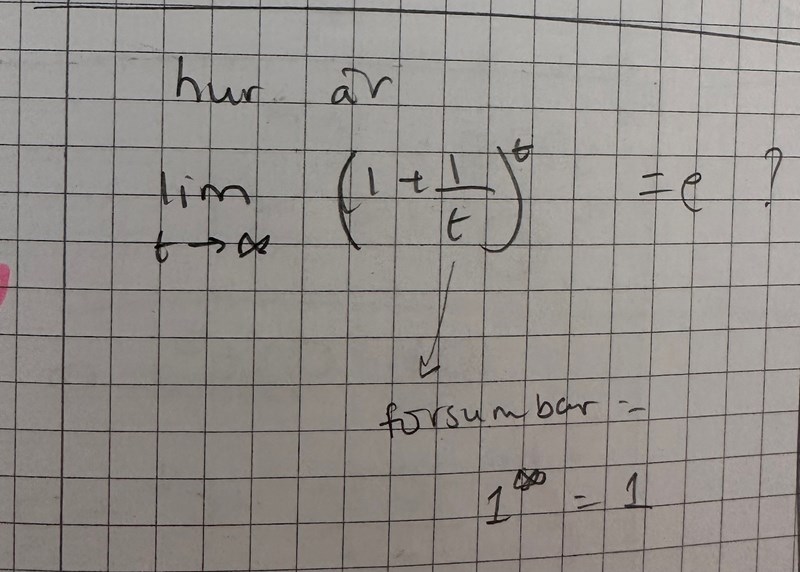 hur är
lim t → ∞ (1 + 1/t)^t = e ?
försumbar =
1^∞ = 1